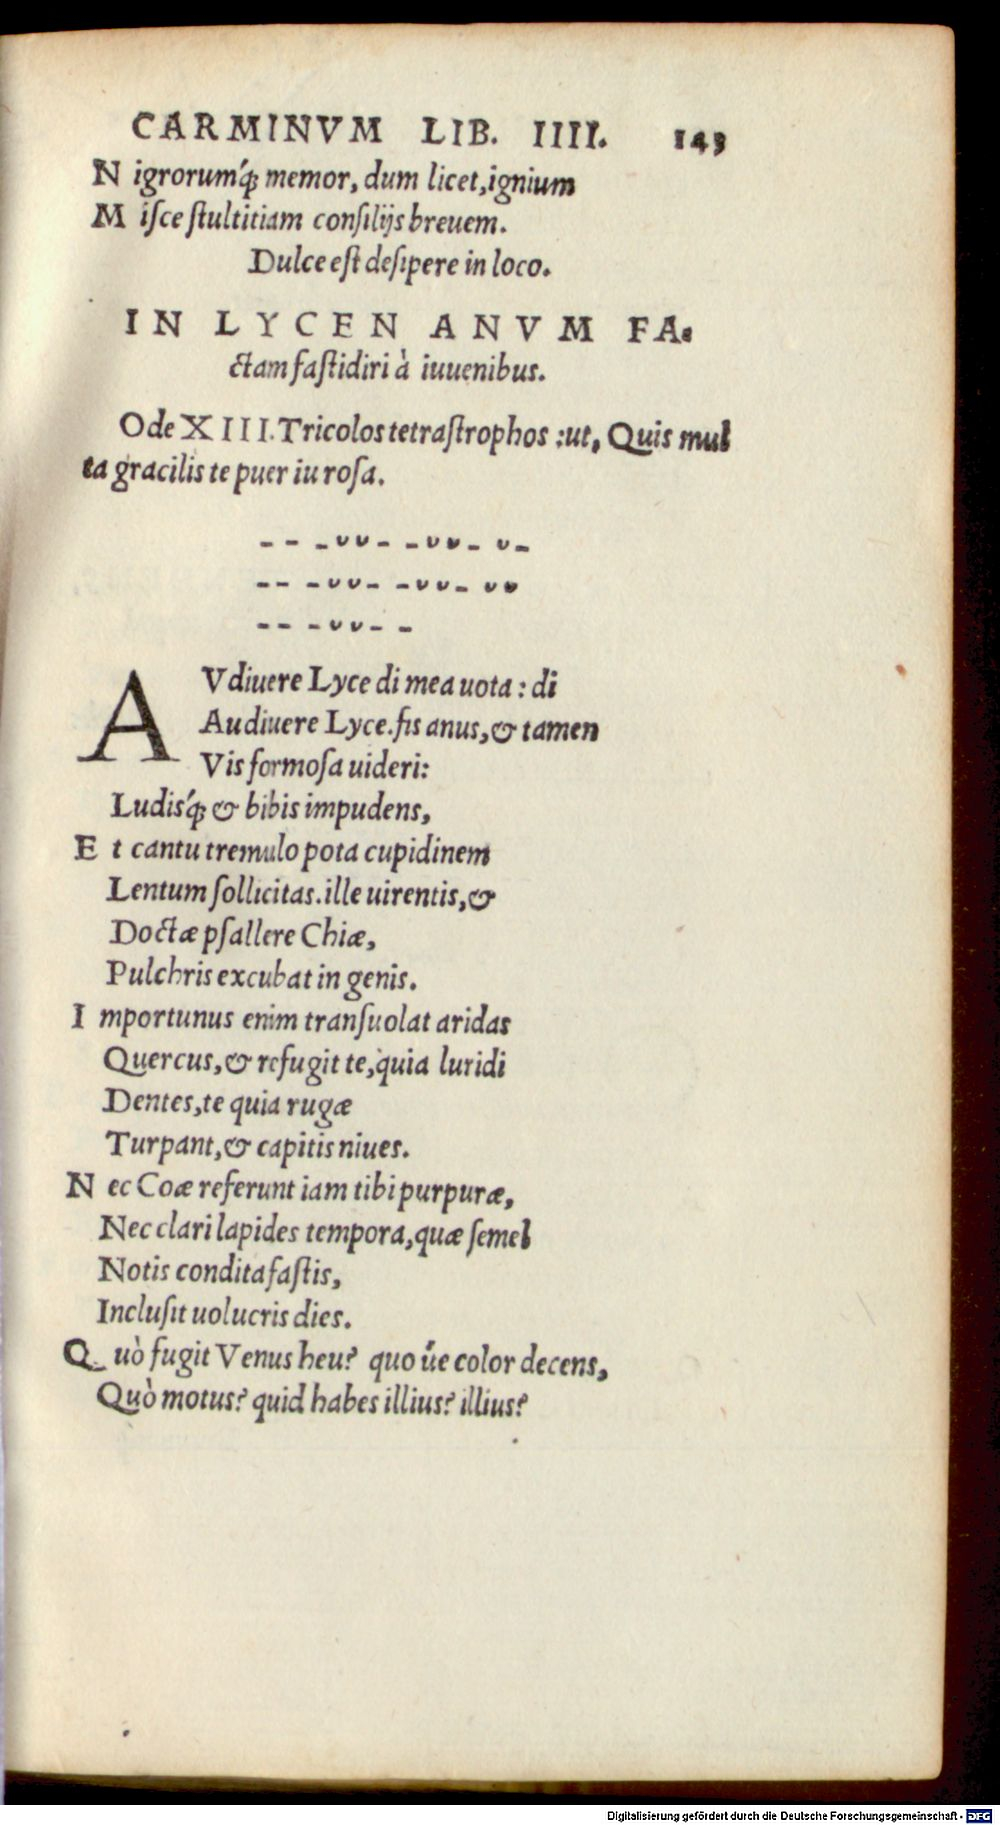 CARMINVM LIB. IIII. 143
N igrorum´q; memor, dum licet, ignium
M iſce ſtultitiam conſilijs breuem.
Dulce eſt deſipere in loco.
IN LYCEN ANVM FA-
ctam faſtidiri à iuuenibus.
Ode XIII. Tricolos tetraſtrophos : ut, Quis mul
ta gracilis te puer iu roſa.
– – – ᴗ ᴗ – – ᴗ ᴗ – ᴗ –
– – – ᴗ ᴗ – – ᴗ ᴗ – ᴗ ᴗ
– – – ᴗ ᴗ – –
AVdiuere Lyce di mea uota : di
Audiuere Lyce. fis anus, & tamen
Vis formoſa uideri:
Ludis´q; & bibis impudens,
E t cantu tremulo pota cupidinem
Lentum ſollicitas. ille uirentis, &
Doctæ pſallere Chiæ,
Pulchris excubat in genis.
I mportunus enim tranſuolat aridas
Quercus, & refugit te, quia luridi
Dentes, te quia rugæ
Turpant, & capitis niues.
N ec Coæ referunt iam tibi purpuræ,
Nec clari lapides tempora, quæ ſemel
Notis condita faſtis,
Incluſit uolucris dies.
Q uò fugit Venus heu? quo úe color decens,
Quò motus? quid habes illius? illius?
Digitalisierung gefördert durch die Deutsche Forschungsgemeinschaft - DFG